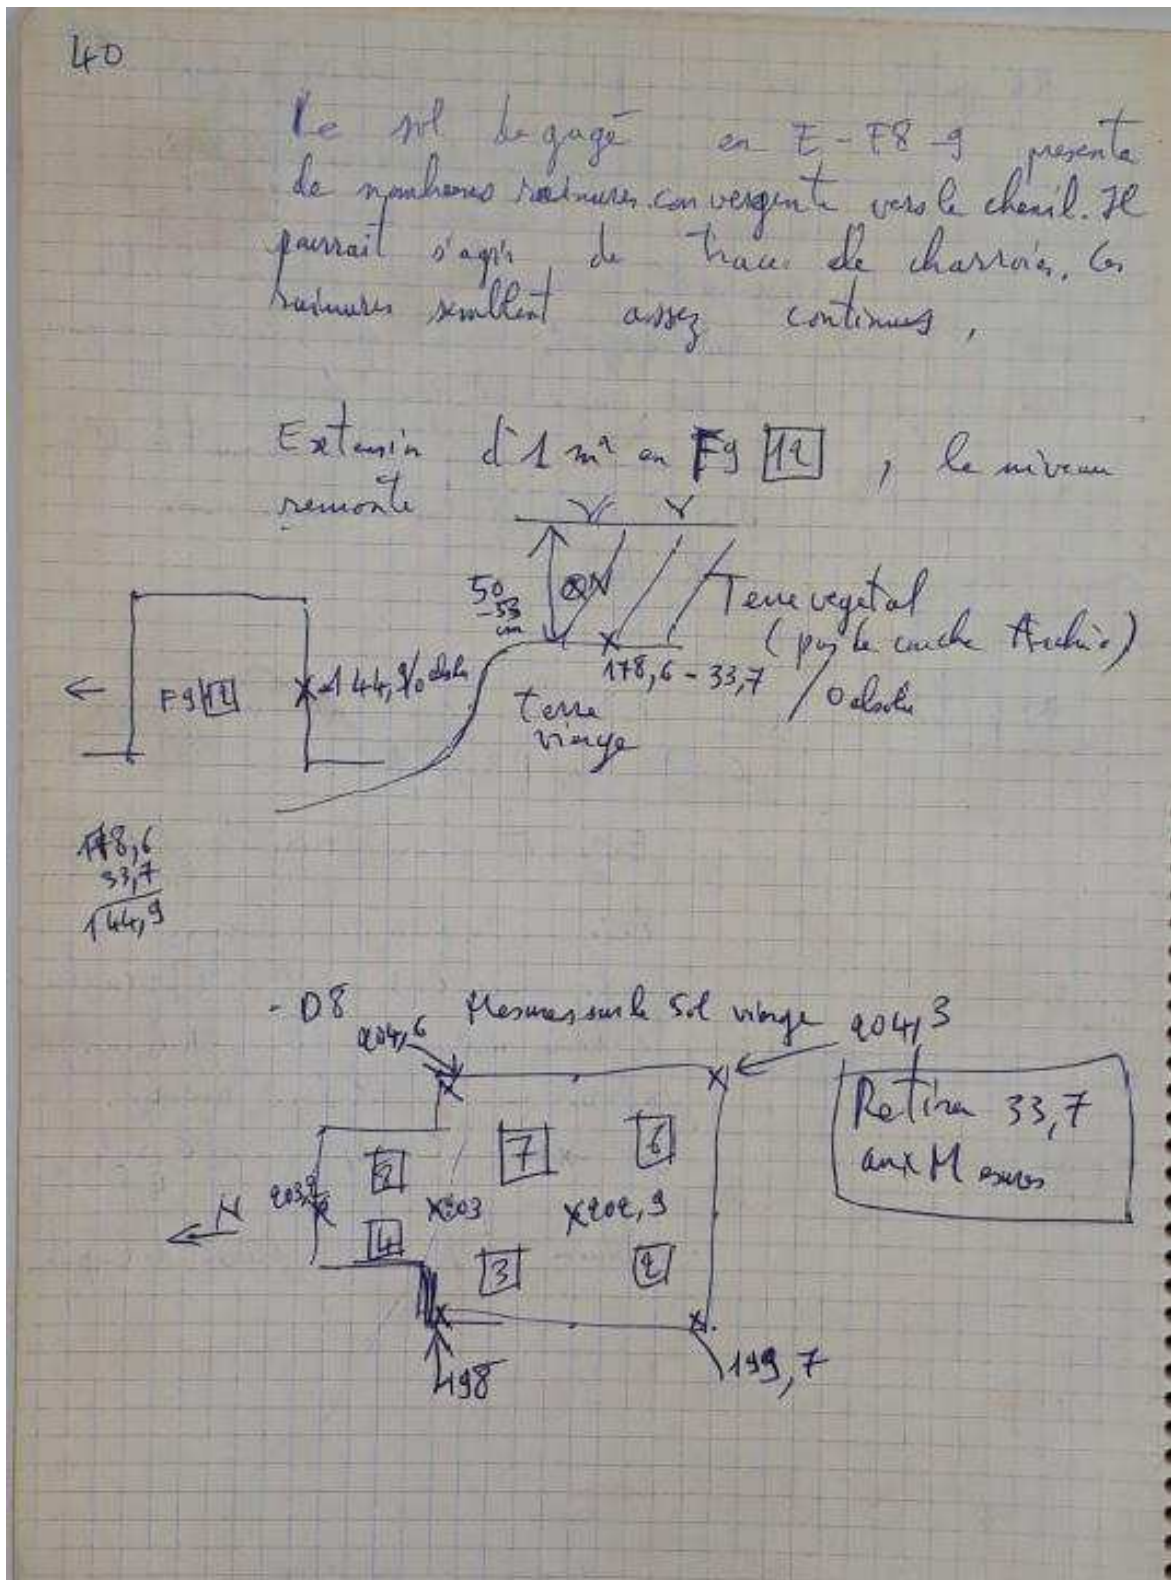 40
Le sol degagé en E-F8-9 presente
de nombreuses rainures convergente vers le chenil. Il
pourrait s'agir de trace de charrois. Ces
rainures semblent assez continues,
Extension d'1 m² en F9 12, le niveau
remonte
50
-53
cm
Terre vegetal
(pas de couche Archéo)
F9 12
-144,9/0 absolu
178,6 - 33,7
/ 0 absolu
terre
vierge
178,6
33,7
144,9
- D8 Mesures sur le Sol vierge
204,6
204,3
Retirer 33,7
aux Mesures
7
6
2
N
203
202,9
4
3
2
198
199,7